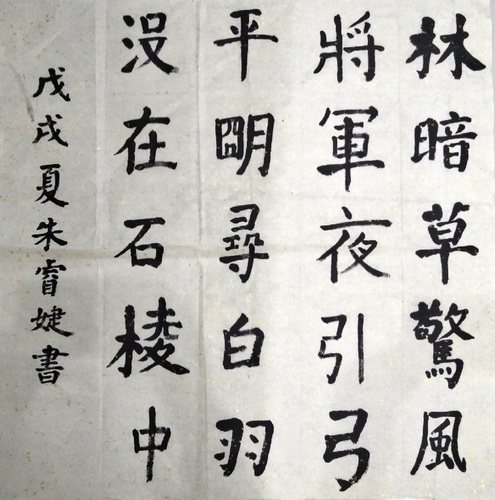 林暗草驚風
將軍夜引弓
平明尋白羽
没在石棱中
戊戌夏朱睿婕書